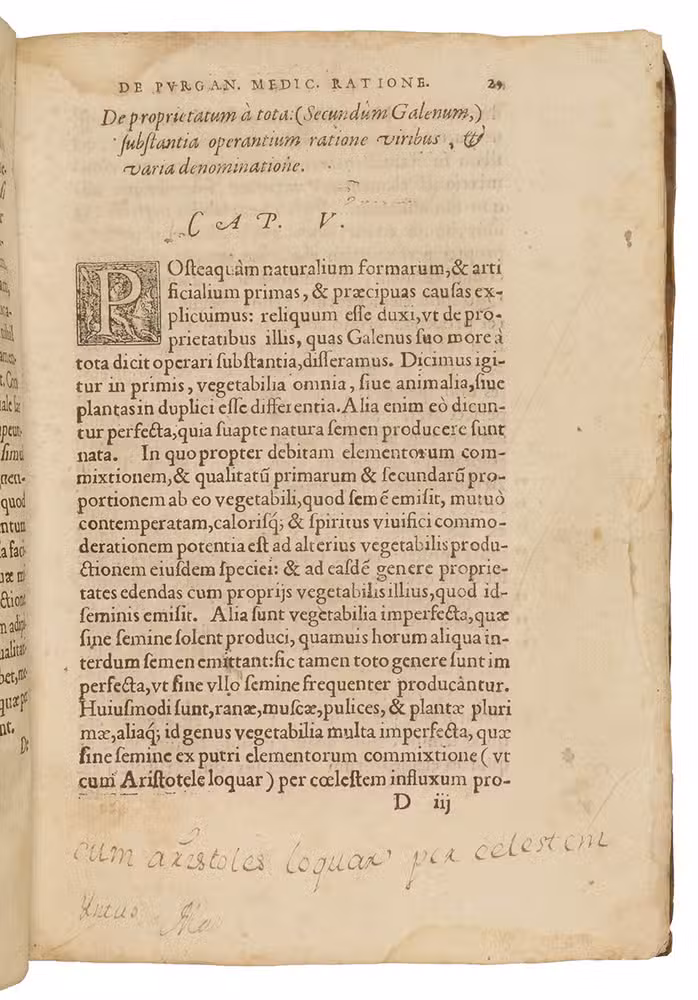 DE PVRGAN. MEDIC. RATIONE. 29
De proprietatum à tota: (Secundùm Galenum,)
ſubſtantia operantium ratione viribus, &
varia denominatione.
CAP. V.
POſteaquàm naturalium formarum, & arti
ficialium primas, & præcipuas cauſas ex-
plicuimus: reliquum eſſe duxi, vt de pro-
prietatibus illis, quas Galenus ſuo more à
tota dicit operari ſubſtantia, diſſeramus. Dicimus igi-
tur in primis, vegetabilia omnia, ſiue animalia, ſiue
plantas in duplici eſſe differentia. Alia enim eò dicun-
tur perfecta, quia ſuapte natura ſemen producere ſunt
nata. In quo propter debitam elementorum com-
mixtionem, & qualitatū primarum & ſecundarū pro-
portionem ab eo vegetabili, quod ſemē emiſit, mutuò
contemperatam, caloriſq; & ſpiritus viuifici commo-
derationem potentia eſt ad alterius vegetabilis produ-
ctionem eiuſdem ſpeciei: & ad eaſdē genere proprie-
tates edendas cum proprijs vegetabilis illius, quod id-
ſeminis emiſit. Alia ſunt vegetabilia imperfecta, quæ
ſine ſemine ſolent produci, quamuis horum aliqua in-
terdum ſemen emittant: ſic tamen toto genere ſunt im
perfecta, vt ſine vllo ſemine frequenter producantur.
Huiuſmodi ſunt, ranæ, muſcæ, pulices, & plantæ pluri
mæ, aliaq; id genus vegetabilia multa imperfecta, quæ
ſine ſemine ex putri elementorum commixtione (vt
cum Ariſtotele loquar) per cœleſtem influxum pro-
D iij
cum aristoles loquar per celestem